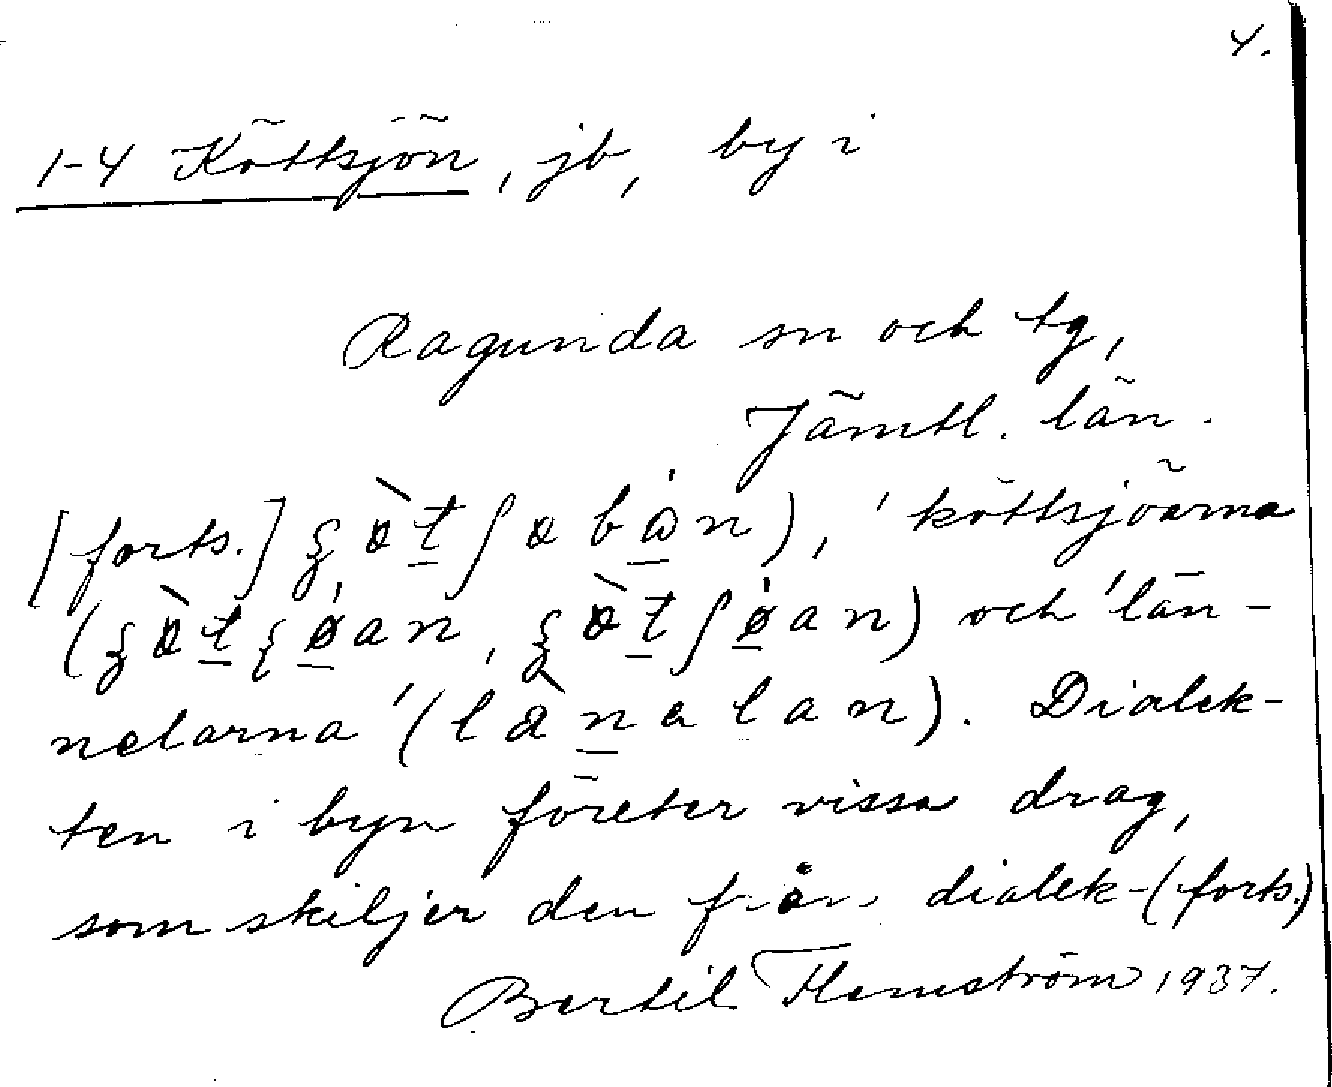 4.
1-4 Köttsjön, jb, by i
Ragunda sn och tg,
Jämtl. län.
[forts.] 'köttsjöarna
och 'län-
nelarna' Dialek-
ten i byn företer vissa drag,
som skiljer den från dialek-(forts.)
Bertil Flemström 1937.